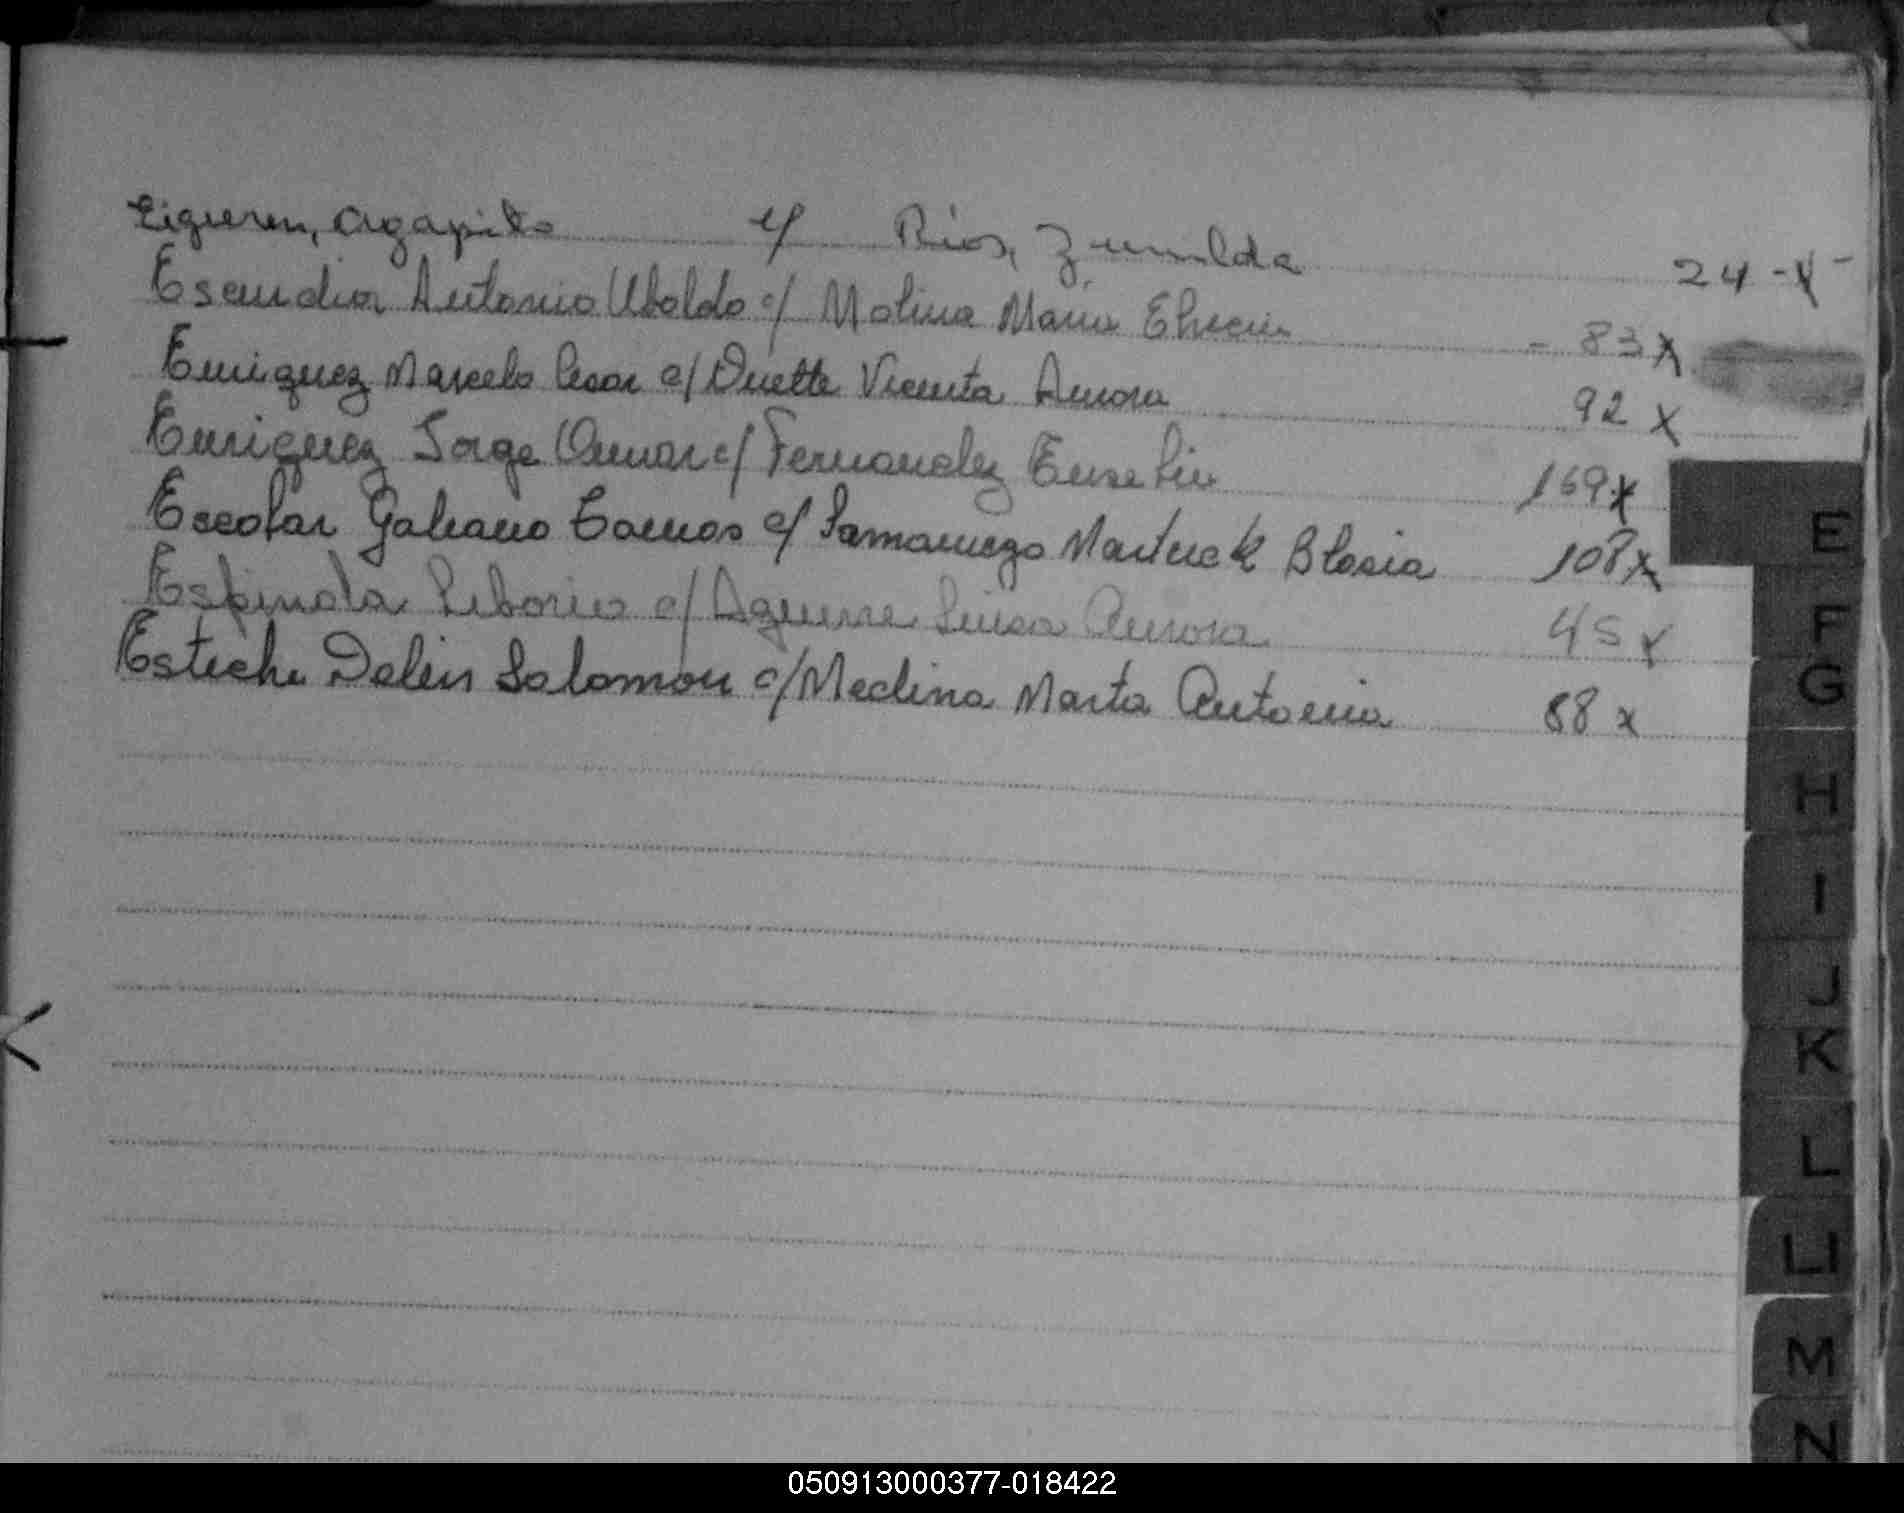 Eigueren, Agapito c/ Ríos, Zunilda 24 -x-
Antonio Ubaldo c/ Molina Maria - 83 x
Enriquez Marcelo Cesar c/ Duette Vicenta Aurora 92 x
Enriquez Jorge Omar c/ Fernandez Eusebia 169 x
Escolar Galeano Tomas c/ Samaniego Blasia 108 x
Espinola Liborio c/ Aguirre Luisa Aurora 45 x
Esteche Delen Salomon c/ Medina Marta Antonia 88 x
E
F
G
H
I
J
K
L
Ll
M
N
050913000377-018422